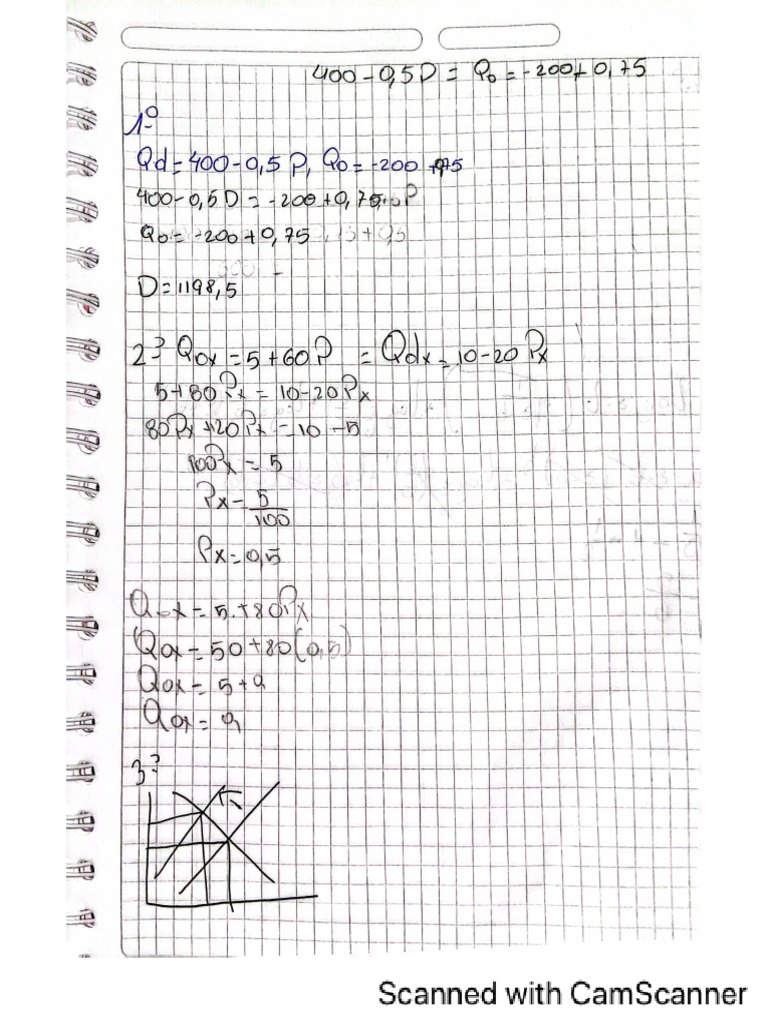 400-0,5D = Qo = -200+0,75
1º
Qd = 400-0,5 P, Qo = -200 +
400-0,5D = -200+0,75 P
Qo = -200+0,75
D = 1198,5
2º Qox = 5+60P = Qdx = 10-20Px
5+80Px = 10-20Px
80Px+20Px = 10-5
100Px = 5
Px = 5/100
Px = 0,5
Qox = 5+80Px
Qox = 50+80(0,5)
Qox = 5+9
Qox = 9
3º
Scanned with CamScanner